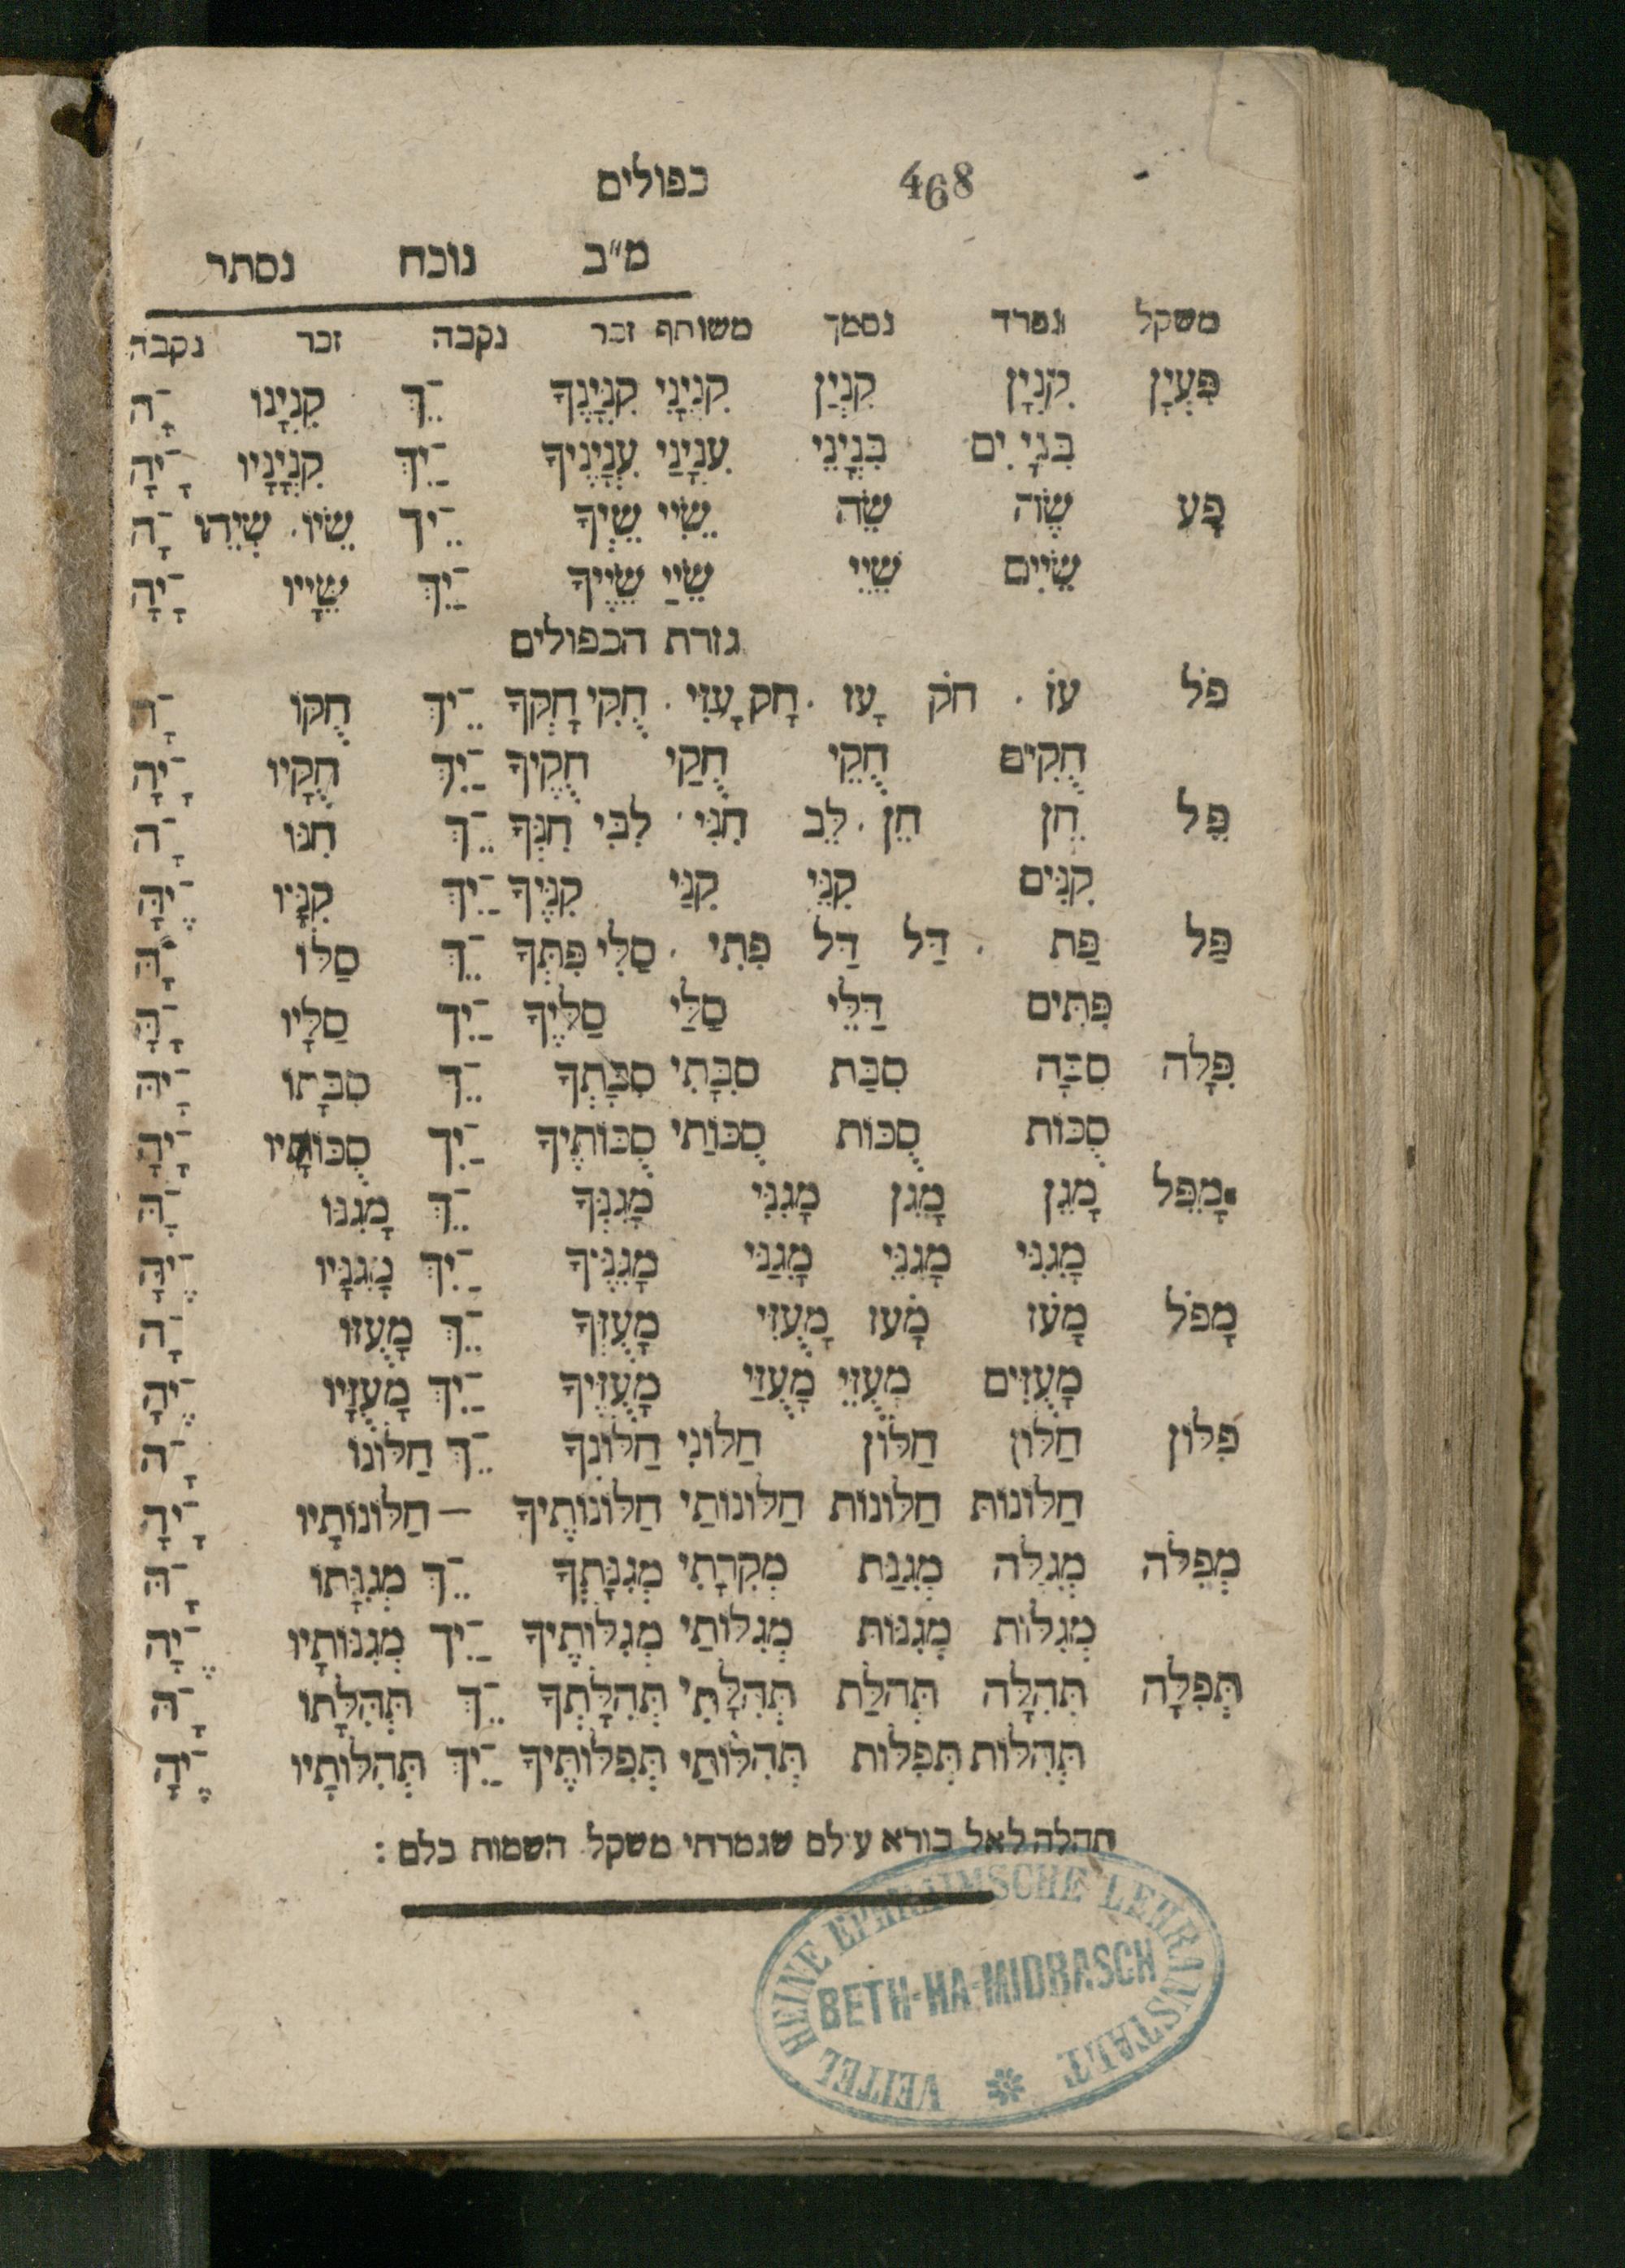 468 כפולים
מ״ב נוכח נסתר
משקל נפרד נסמך משותף זכר נקבה זכר נקבה
פִּעְיָן קִנְיָן קִנְיַן קִנְיָנִי קִנְיָנֶךָ ־ֵךְ קִנְיָנוֹ ־ָהּ
בִּנְיָנִים בִּנְיָנֵי עִנְיָנַי עִנְיָנֶיךָ ־ַיִךְ קִנְיָנָיו ־ֶיהָ
פֶּע שֶׂה שֵׂה שֵׂיִי שֵׂיְךָ ־ֵיךְ שֵׂיוֹ . שְׂיֵהוּ ־ָהּ
שֵׂיִים שֵׂיֵי שֵׂיַי שֵׂיֶיךָ ־ַיִךְ שֵׂיָיו ־ֶיהָ
גזרת הכפולים
פֹּל עֹז . חֹק עָז . חָק עֻזִּי . חֻקִּי חָקְךָ ־ֵיךְ חֻקּוֹ ־ָהּ
חֻקִּים חֻקֵּי חֻקַּי חֻקֶּיךָ ־ַיִךְ חֻקָּיו ־ֶיהָ
פֵּל חֵן חֵן . לֵב חִנִּי . לִבִּי חִנְּךָ ־ֵךְ חִנּוֹ ־ָהּ
קִנִּים קִנֵּי קִנַּי קִנֶּיךָ ־ַיִךְ קִנָּיו ־ֶיהָ
פַּל פַּת . דַּל דַּל פִּתִּי . סַלִּי פִּתְּךָ ־ֵךְ סַלּוֹ ־ָהּ
פִּתִּים דַּלֵּי סַלַּי סַלֶּיךָ ־ַיִךְ סַלָּיו ־ֶהָ
פִּלָּה סִבָּה סִבַּת סִבָּתִי סִבָּתְךָ ־ֵךְ סִבָּתוֹ ־ָהּ
סֻכּוֹת סֻכּוֹת סֻכּוֹתַי סֻכּוֹתֶיךָ ־ַיִךְ סֻכּוֹתָיו ־ֶיהָ
מָפֵּל מָגֵן מָגֵן מָגִנִּי מָגִנְּךָ ־ֵךְ מָגִנּוֹ ־ָהּ
מָגִנִּי מָגִנֵּי מָגִנַּי מָגִנֶּיךָ ־ַיִךְ מָגִנָּיו ־ֶיהָ
מָפֹל מָעֹז מָעֹז מָעֻזִּי מָעֻזְּךָ ־ֵךְ מָעֻזּוֹ ־ָהּ
מָעֻזִּים מָעֻזֵּי מָעֻזַּי מָעֻזֶּיךָ ־ַיִךְ מָעֻזָּיו ־ֶיהָ
פִּלּוֹן חַלּוֹן חַלּוֹן חַלּוֹנִי חַלּוֹנְךָ ־ֵךְ חַלּוֹנוֹ ־ָהּ
חַלּוֹנוֹת חַלּוֹנוֹת חַלּוֹנוֹתַי חַלּוֹנוֹתֶיךָ — חַלּוֹנוֹתָיו ־ֶיהָ
מְפִלָּה מְגִלָּה מְגִנַּת מְקִרָתִי מְגִנָּתְךָ ־ֵךְ מְגִנָּתוֹ ־ָהּ
מְגִלּוֹת מְגִנּוֹת מְגִלּוֹתַי מְגִלּוֹתֶיךָ ־ַיִךְ מְגִנּוֹתָיו ־ֶיהָ
תְּפִלָּה תְּהִלָּה תְּהִלַּת תְּהִלָּתִי תְּהִלָּתְךָ ־ֵךְ תְּהִלָּתוֹ ־ָהּ
תְּהִלּוֹת תְּפִלּוֹת תְּהִלּוֹתַי תְּפִלּוֹתֶיךָ ־ַיִךְ תְּהִלּוֹתָיו ־ֶיהָ
תהלה לאל בורא עולם שגמרתי משקל השמות כלם :
VEITEL HEINE EPHRAIMSCHE LEHRANSTALT
BETH-HA-MIDRASCH